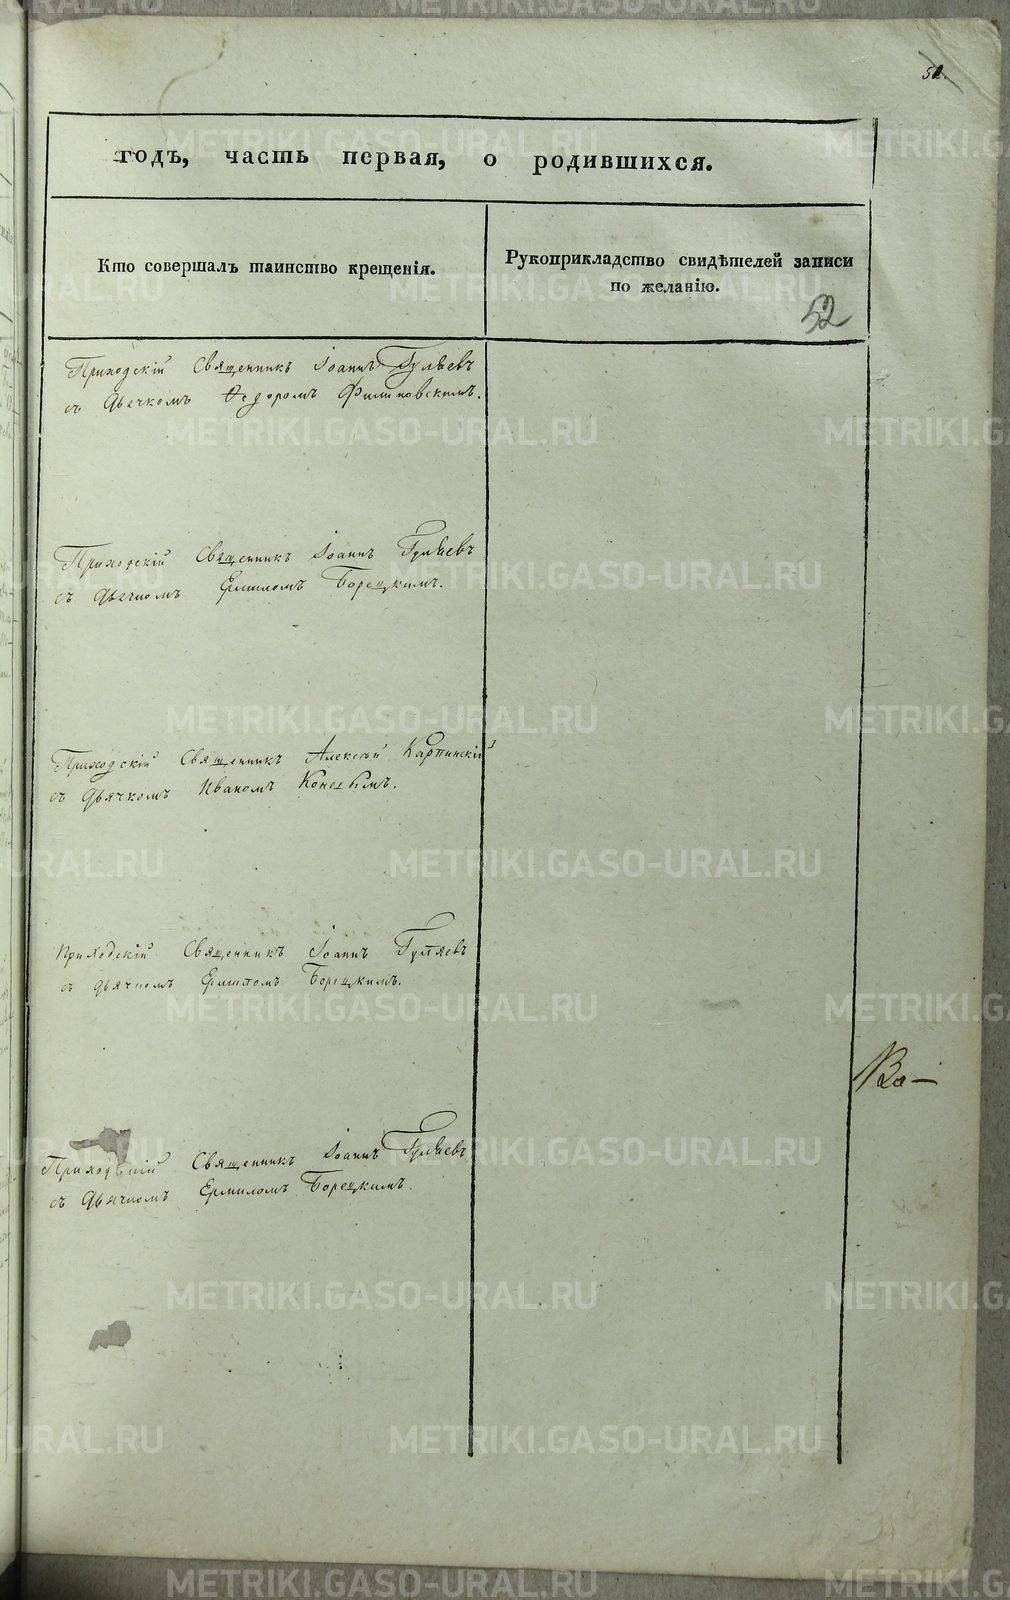 52.
годъ, часть первая, о родившихся.
Кто совершалъ таинство крещенія.
Рукоприкладство свидѣтелей записи
по желанію.
52
Приходскій Священникъ Іоаннъ Гуляевъ
съ Дьячкомъ Ѳедоромъ Филиковскимъ.
Приходскій Священникъ Іоаннъ Гуляевъ
съ Дьячкомъ Ермиломъ Борецкимъ.
Приходскій Священникъ Алексѣй Карпинскій
съ Дьячкомъ Иваномъ
Приходскій Священникъ Іоаннъ Гуляевъ
съ дьячкомъ Ермиломъ Борецкимъ.
Ва—
Приходскій Священникъ Іоаннъ Гуляевъ
съ Дьячкомъ Ермиломъ Борецкимъ.
METRIKI.GASO-URAL.RU